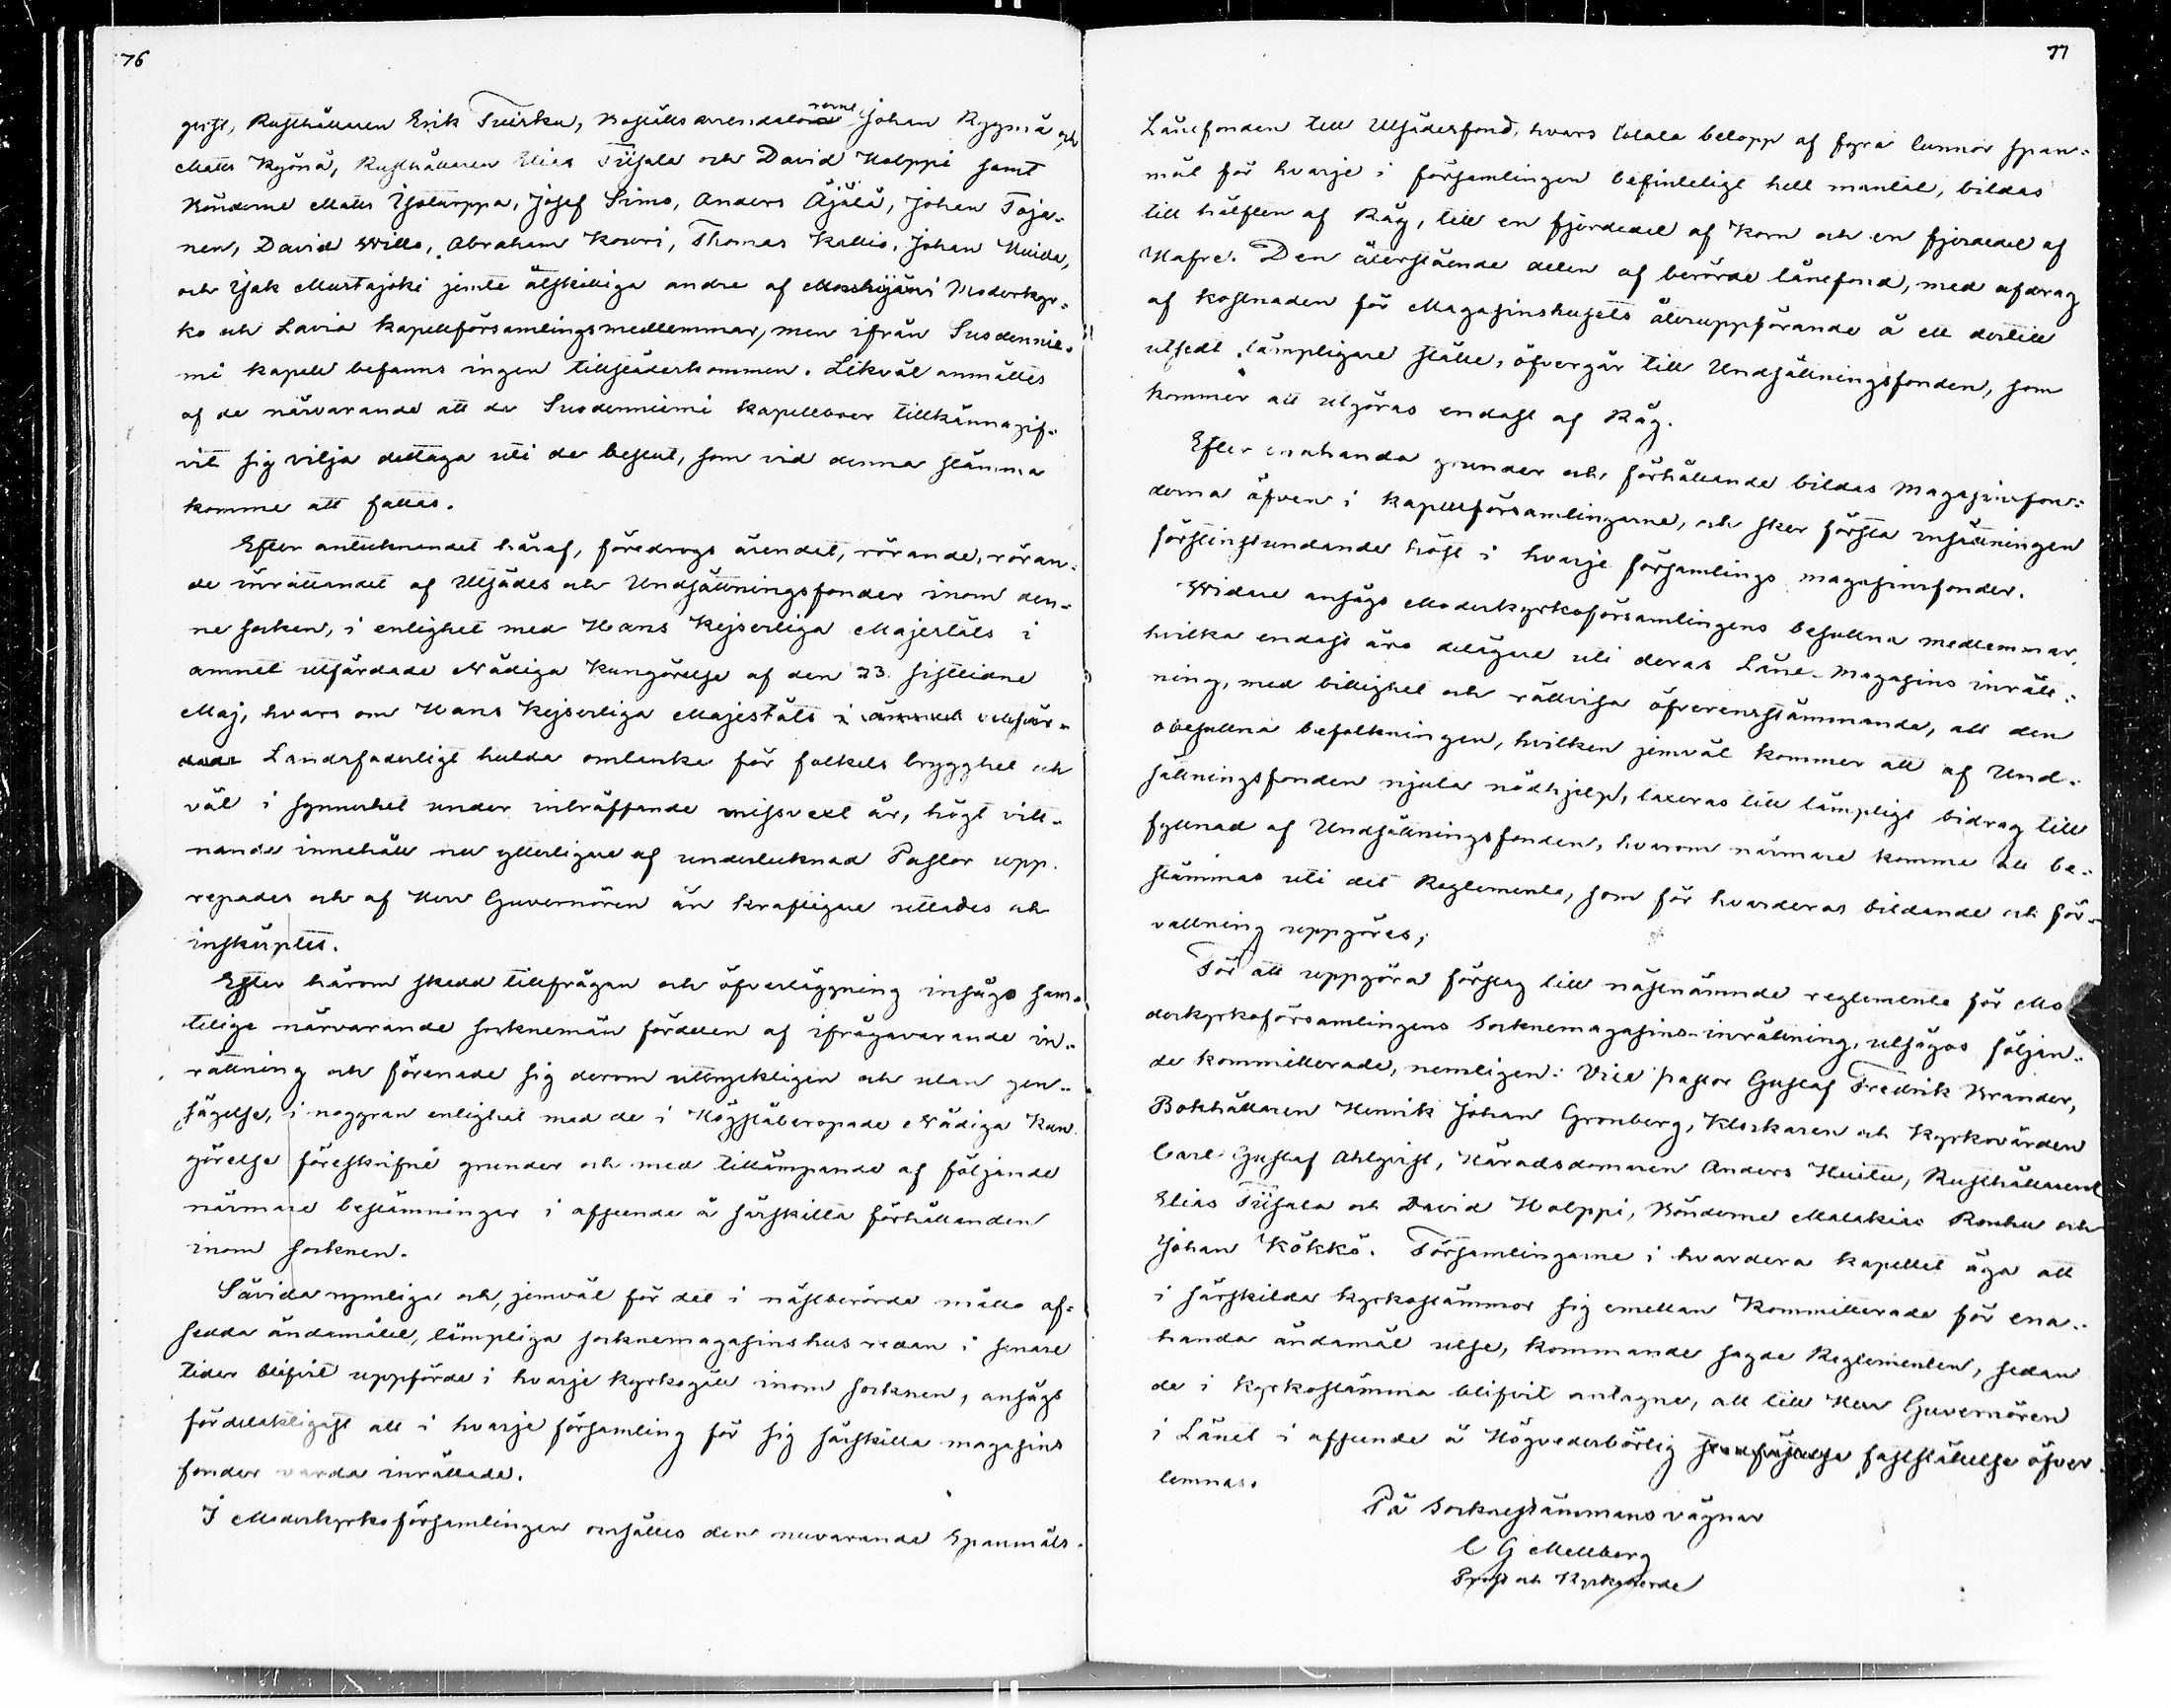 76
qvist, Rusthållaren Erik Tuiska, Boställsarrendatorerne Johan Ryymä och
Matts Ryömä, Rusthållaren Elias Tiisala och David Holppi samt
Bönderne Matts Isotarppa, Josef Simo, Anders Äjälä, Johan Toja-
nen, David Wille, Abraham Kouri, Thomas Kallio, Johan Uuida,
och Isak Mustajoki jemte åtskilliga andre af Mouhijärvi Moderkyr-
ko och Lavia Kapellförsamlingsmedlemmar, men ifrån Suodennie-
mi kapell befanns ingen tillstädeskommen. Likväl anmältes
af de närvarande att de Suodenniemi kapelleboer tillkännagif-
vit sig vilja deltaga uti de beslut, som vid denna stämma
komme att fattas.
Efter antecknandet häraf, föredrogs ärendet, rörande, röran-
de inrättandet af Utsädes och Undsättningsfonder inom den-
ne socken, i enlighet med Hans Kejserliga Majestäts i
ämnet utfärdade Nådiga Kungörelse af den 23. sistlidne
Maj, hvars om Hans Kejserliga Majestäts i ämnet utfär-
dade Landsfaderligt hulda omtanke för folkets trygghet och
väl i synnerhet under inträffande missvext år, högt vitt-
nande innehåll nu ytterligare af undertecknad Pastor upp-
repades och af Herr Guvernören än kraftigare uttalades och
inskärptes.
Efter härom skedd tillfrågan och öfverläggning insågo sam-
telige närvarande sockenemän fördelen af ifrågavarande in-
rättning och förenade sig derom uttryckligen och utan gen-
sägelse, i noggran enlighet med de i Högståberopade Nådiga Kun-
görelse föreskrifne grunder och med tillämpande af följande
närmare bestämningar i afseende å särskilta förhållanden
inom socknen.
Såvida nemligen och, jemväl för det i nästberörde måtto af-
sedda ändamålet, lämpliga socknemagasinshus redan i senare
tider blifvit uppförde i hvarje kyrkogäll inom socknen, ansågs
fördelaktigast att i hvarje församling för sig särskilta magasins
fonder varda inrättade.
I Moderkyrkoförsamlingen omsättes den nuvarande Spanmåls-
77
Lånefonden till Utsädesfond, hvars totala belopp af fyra tunnor span-
mål för hvarje i församlingen befinteligt helt mantal, bildas
till hälften af Råg, till en fjerdedel af Korn och en fjerdedel af
Hafre. Den återstående delen af berörde lånefond, med afdrag
af kostnaden för Magasinshusets återuppförande å ett dertill
utsedt lämpligare ställe, öfvergår till Undsättningsfonden, som
kommer att utgöras endast af Råg.
Efter enahanda grunder och förhållande bildas Magasinsfon-
derna äfven i kapellförsamlingarne, och sker första insättningen
förstinstundande höst i hvarje församlings magasinsfonder.
Widare ansågo Moderkyrkoförsamlingens besuttna medlemmar,
hvilka endast äro delägare uti deras Låne-magasins inrätt-
ning, med billighet och rättvisa öfverensstämmande, att den
obesuttna befolkningen, hvilken jemväl kommer att af Und-
sättningsfonden njuta nödhjelp, taxeras till lämpligt bidrag till
fyllnad af Undsättningsfonden, hvarom närmare komme att be-
stämmas uti det Reglemente, som för hvarderas bildande och för-
valtning uppgöres;
För att uppgöra förslag till nästnämnde reglemente för Mo
derkyrkoförsamlingens Socknemagasins-inrättning, utsågos följan-
de kommitterade, nemligen: Vice pastor Gustaf Fredrik Brander,
Bokhållaren Henrik Johan Gronberg, Klockaren och Kyrkovärden
Carl Gustaf Ahlqvist, Häradsdomaren Anders Huitu, Rusthållarene
Elias Tiisala och David Holppi, Bönderne Malakias Rouhu och
Johan Kökkö. Församlingarne i hvardera kapellet äga att
i särskilda kyrkostämmor sig emellan Kommitterade för ena-
handa ändamål utse, kommande sagde Reglementen, sedan
de i kyrkostämma blifvit antagne, att till Herr Guvernören
i Länet i afseende å Högvederbörlig fastställelse öfver-
lemnas.
På Socknestämmans vägnar
C G Mellberg
Prost och Kyrkoherde